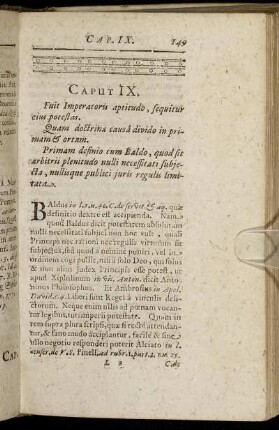 CAP. IX. 149
CAPUT IX.
Fuit Imperatoris aptitudo, sequitur
eius potestas.
Quam doctrinæ causâ divido in pri-
mam & ortam.
Primam definio cum Baldo, quod sit
arbitrii plenitudo nulli necessitati subje-
cta, nullisque publici juris regulis limi-
tata.
BAldus in C. de & aq. quæ
definitio dextre est accipienda. Nam
quod Baldus dicit potestatem absolutam
nulli necessitati subjici non hoc vult, quasi
Princeps nec rationi nec regulis virtutum sit
subjectus, sed quod à nemine puniri, vel in
ordinem cogi possit, nisi à solo Deo, qui solus
& non alius Judex Principis esse potest, ut
apud Xiphilinum in vit. Anton. dicit Anto-
ninus Philosophus. Et Ambrosius in Apol.
David. c. 4. Liberi sunt Reges à vinculis delic-
torum. Neque enim ullis ad pœnam vocan-
tur legibus, tuti imperii potestate. Quam in
rem supra plura scripsi, quæ si recte attendan-
tur, & fano modo accipiantur, facile &
hoc negotio responderi poterit Alciato in l.
de V. S. Pinell. ad rubr. part. 1. nu. 25.
L 3